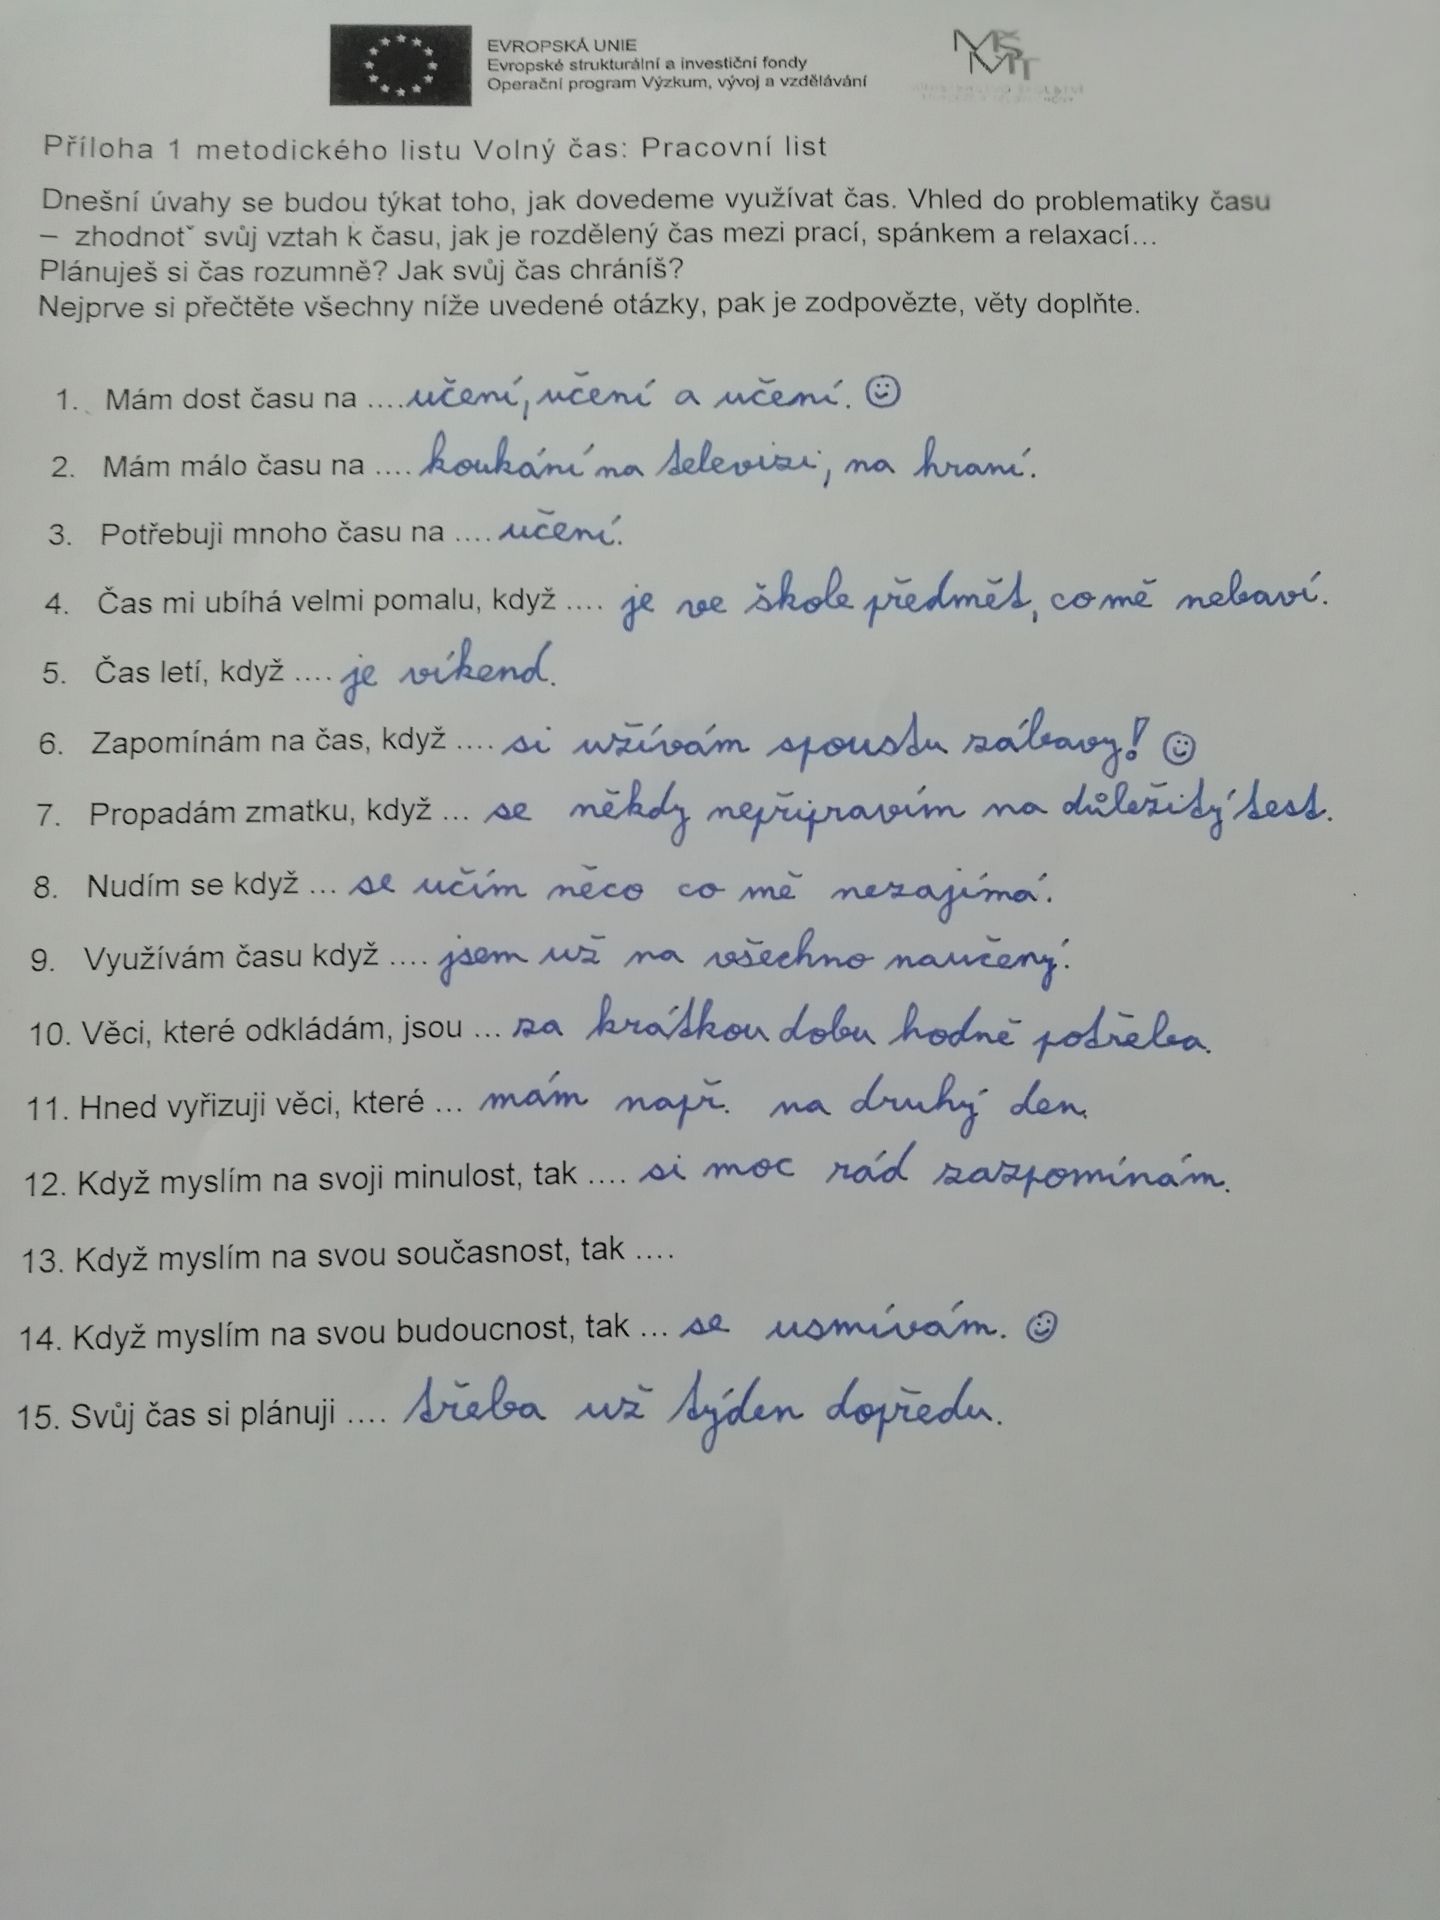 EVROPSKÁ UNIE
Evropské strukturální a investiční fondy
Operační program Výzkum, vývoj a vzdělávání
MŠMT
Příloha 1 metodického listu Volný čas: Pracovní list
Dnešní úvahy se budou týkat toho, jak dovedeme využívat čas. Vhled do problematiky času
– zhodnotˇ svůj vztah k času, jak je rozdělený čas mezi prací, spánkem a relaxací...
Plánuješ si čas rozumně? Jak svůj čas chráníš?
Nejprve si přečtěte všechny níže uvedené otázky, pak je zodpovězte, věty doplňte.
1. Mám dost času na ....učení, učení a učení. ☺
2. Mám málo času na .... koukání na televizi, na hraní.
3. Potřebuji mnoho času na .... učení.
4. Čas mi ubíhá velmi pomalu, když .... je ve škole předmět, co mě nebaví.
5. Čas letí, když .... je víkend.
6. Zapomínám na čas, když .... si užívám spoustu zábavy! ☺
7. Propadám zmatku, když ... se někdy nepřipravím na důležitý test.
8. Nudím se když ... se učím něco co mě nezajímá.
9. Využívám času když .... jsem už na všechno naučený.
10. Věci, které odkládám, jsou ... za krátkou dobu hodně potřeba.
11. Hned vyřizuji věci, které ... mám např. na druhý den.
12. Když myslím na svoji minulost, tak .... si moc rád zazpomínám.
13. Když myslím na svou současnost, tak ....
14. Když myslím na svou budoucnost, tak ... se usmívám. ☺
15. Svůj čas si plánuji .... třeba už týden dopředu.